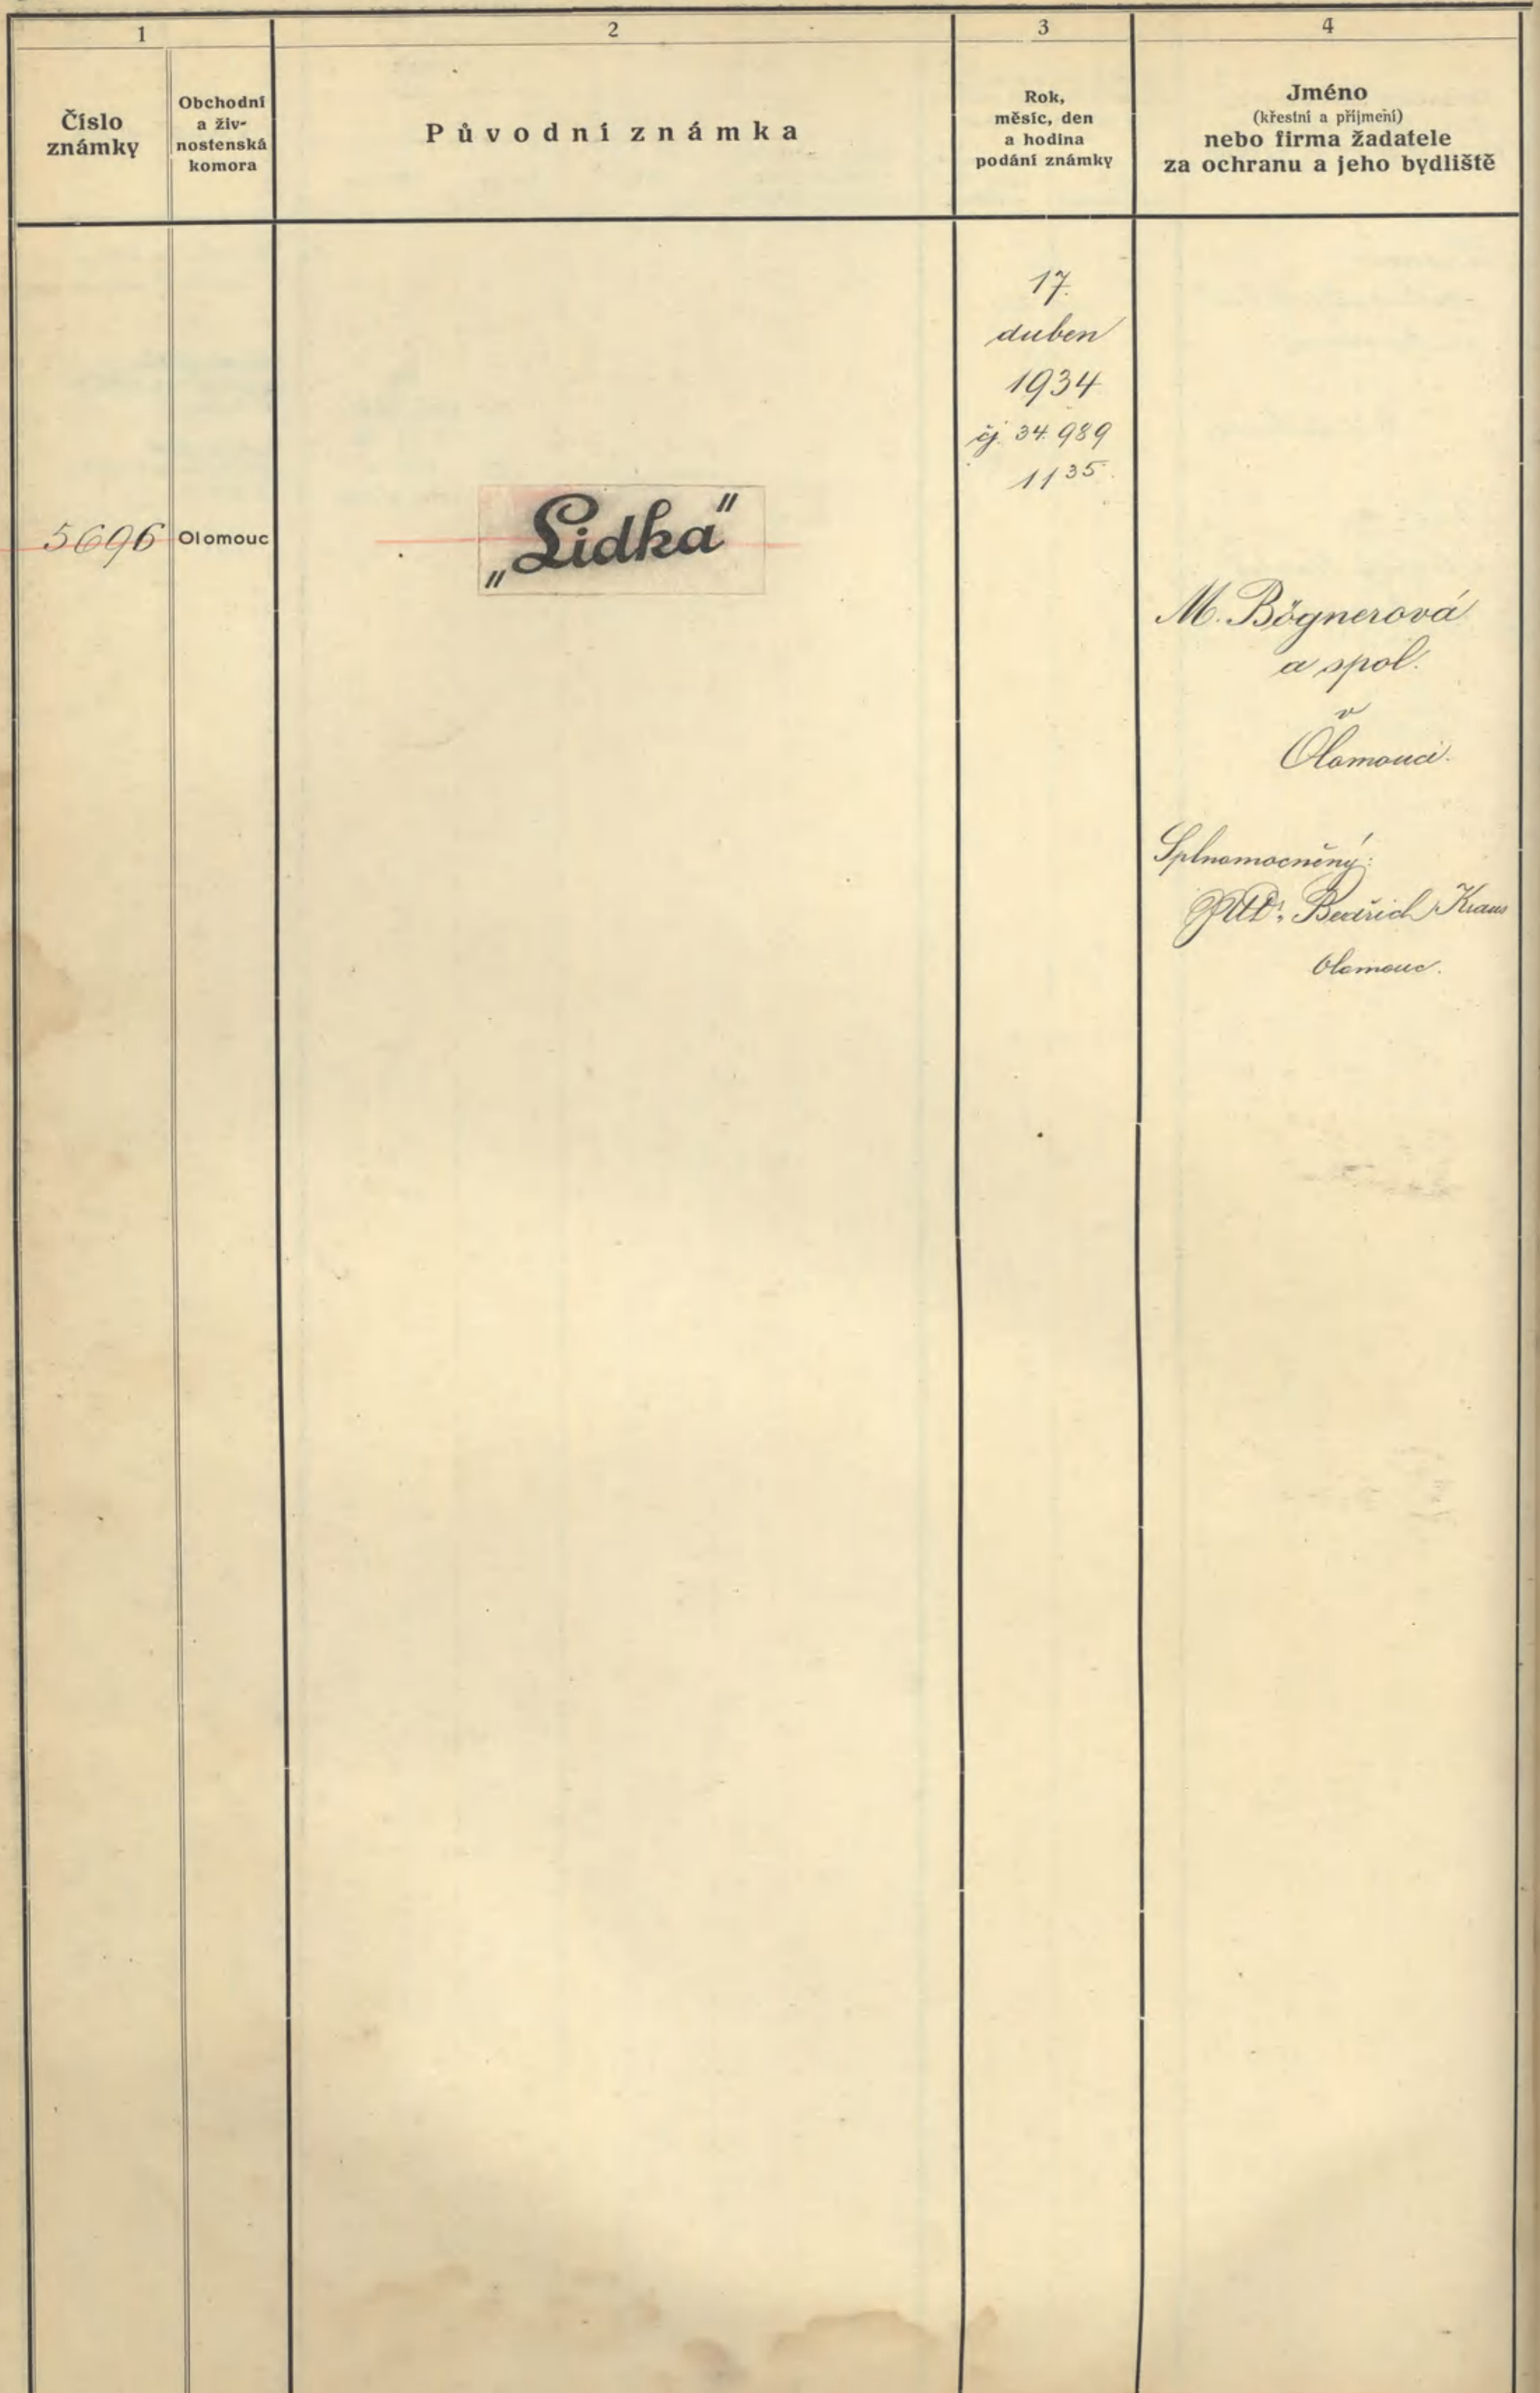 1
2
3
4
Číslo
známky
Obchodní
a živ-
nostenská
komora
Původní známka
Rok,
měsíc, den
a hodina
podání známky
Jméno
(křestní a příjmení)
nebo firma žadatele
za ochranu a jeho bydliště
5696
Olomouc
„Lidka"
17.
duben
1934
čj. 34.989
11 35.
M. Bögnerová
a spol.
v
Olomouci.
Splnomocněný:
JUDr. Bedřich Kraus
Olomouc.